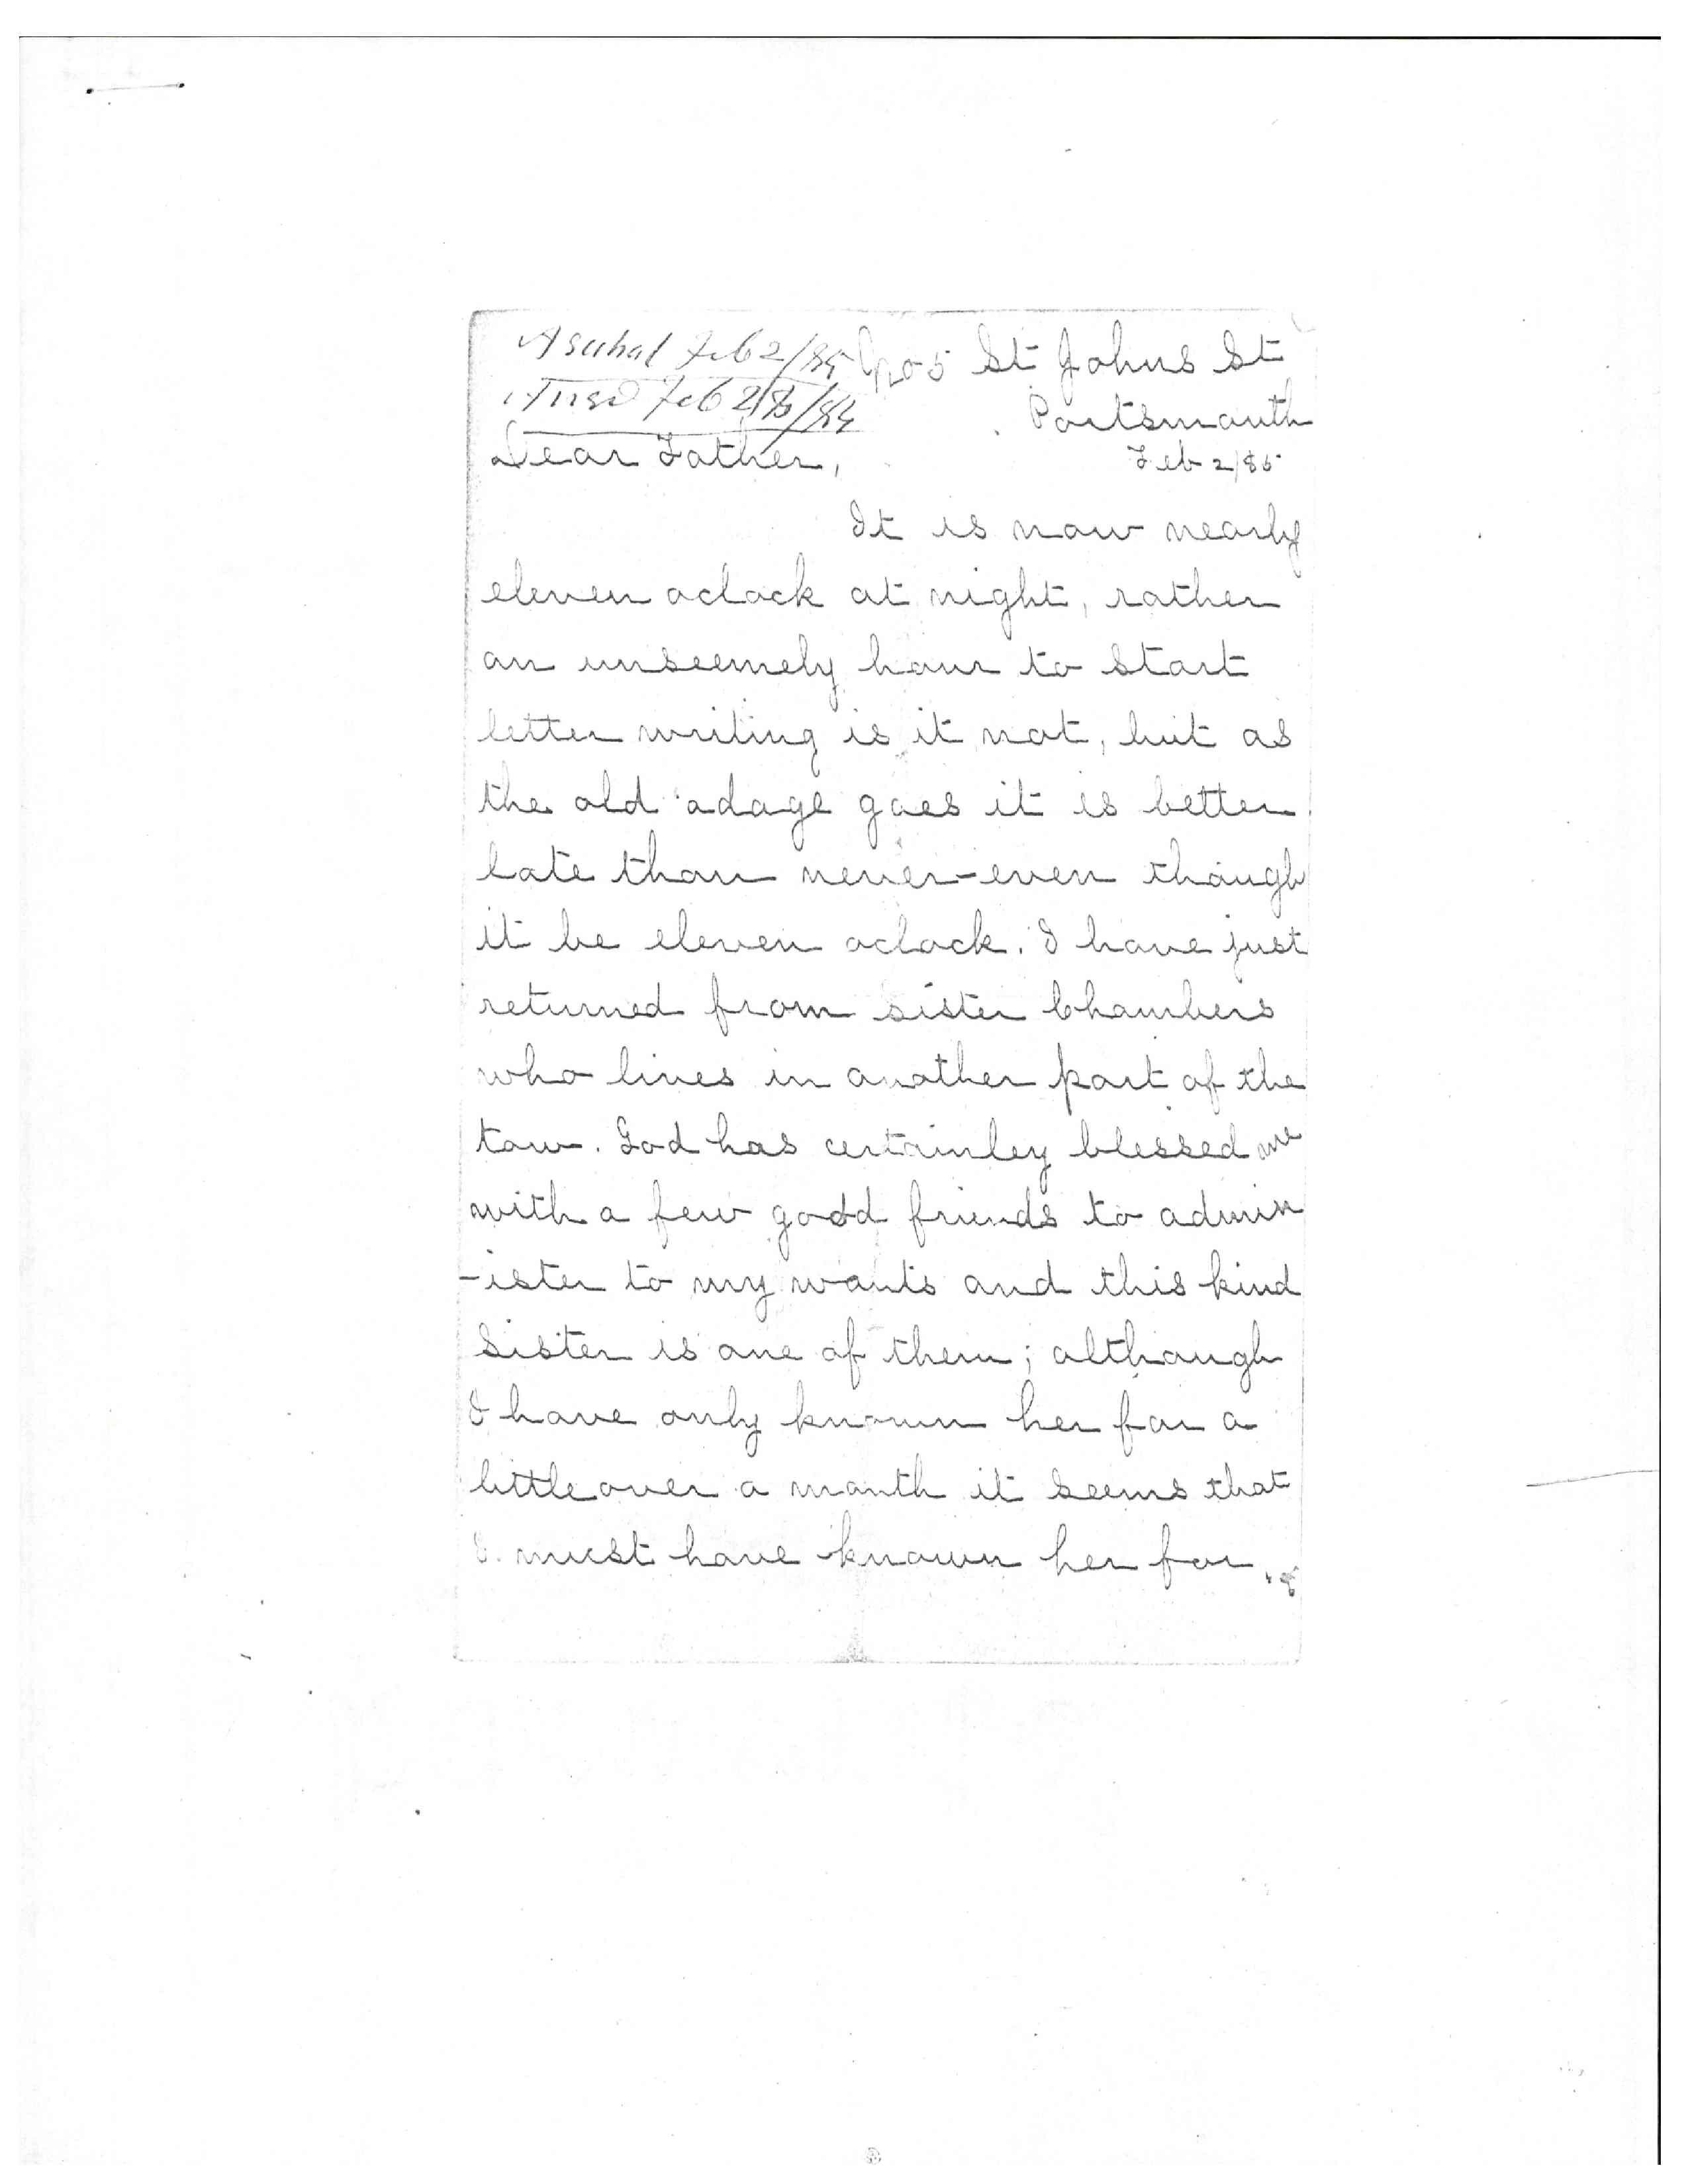 Feb 2/85
205 St Johns St
Feb 28/85
Portsmouth
Dear Father,
Feb 2/85
It is now nearly
eleven oclock at night, rather
an unseemely hour to start
letter writing is it not, but as
the old adage goes it is better
late than never-even though
it be eleven oclock. I have just
returned from sister Chambers
who lives in another part of the
tow. God has certainley blessed me
with a few good friends to admin
-ister to my wants and this kind
Sister is one of them; although
I have only known her for a
little over a month it seems that
I must have known her for